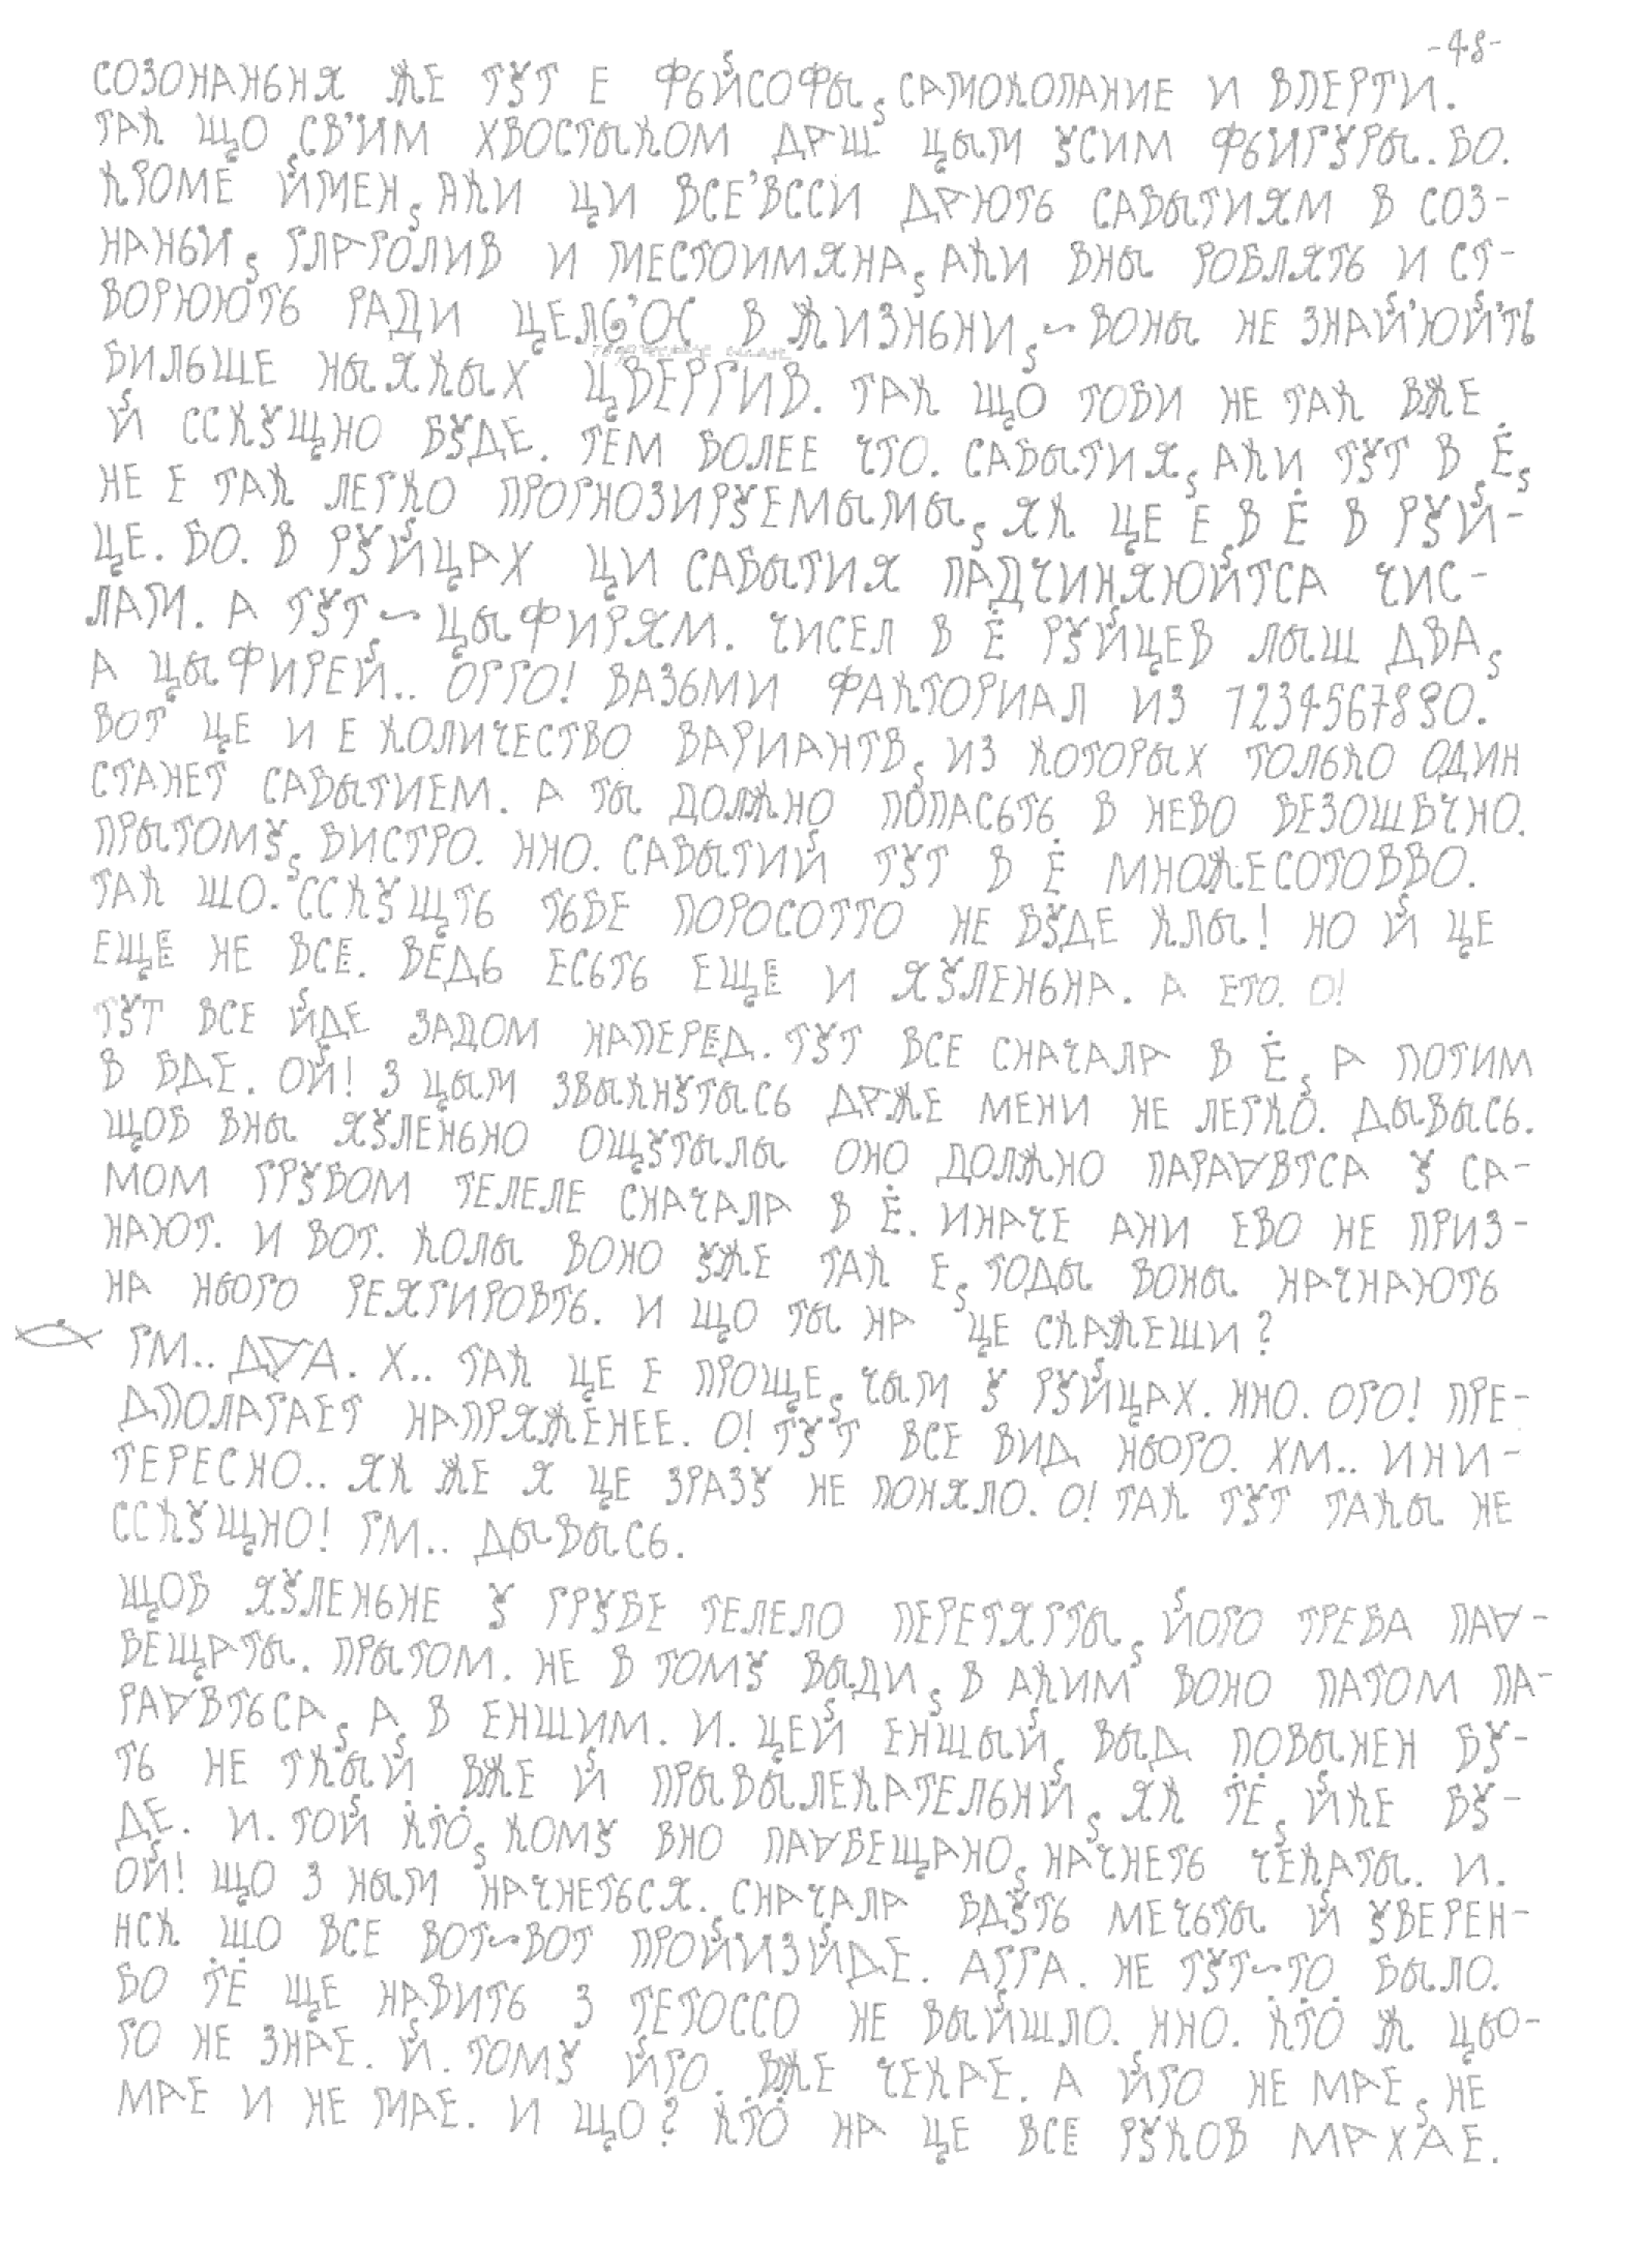 -48-
СОЗОНАНЬНЯ ЖЕ ТУТ Е ФЬЙСОФЫ, САМОКОПАНИЕ И ВПЕРТИ.
ТАК ЩО СВ'ИМ ХВОСТЫКОМ ДАШ ЦЫМ УСИМ ФЬИГУРЫ. БО.
КРОМЕ ЙМЕН, АКИ ЦИ ВСЕ'ВССИ ДАЮТЬ САВЫТИЯМ В СОЗ-
НАНЬИ, ГЛАГОЛИВ И МЕСТОИМЯНА, АКИ ВНЫ РОБЛЯТЬ И СТ-
ВОРЮЮТЬ РАДИ В ЖИЗНЬНИ, ~ ВОНЫ НЕ ЗНАЙ'ЮЙ'ТЬ
БИЛЬШЕ НЫЯКЫХ ЦВЕРГИВ. ТАК ЩО ТОБИ НЕ ТАК ВЖЕ
Й ССКУЩНО БУДЕ. ТЕМ БОЛЕЕ ЧТО. САБЫТИЯ, АКИ ТУТ В Ė,
НЕ Е ТАК ЛЕГКО ПРОГНОЗИРУЕМЫМЫ, ЯК ЦЕ Е В Ė В РУЙ-
ЦЕ. БО. В РУЙЦАХ ЦИ САБЫТИЯ ПАДЧИНЯЮЙТСА ЧИС-
ЛАМ. А ТУТ ~ ЦЫФИРЯМ. ЧИСЕЛ В Ė РУЙЦЕВ ЛЫШ ДВА,
А ЦЫФИРЕЙ.. ОГГО! ВАЗЬМИ ФАКТОРИАЛ ИЗ 1234567890.
ВОТ ЦЕ И Е КОЛИЧЕСТВО ВАРИАНТВ, ИЗ КОТОРЫХ ТОЛЬКО ОДИН
СТАНЕТ САВЫТИЕМ. А ТЫ ДОЛЖНО ПОПАСЬТЬ В НЕВО БЕЗОШБЧНО.
ПРЫТОМУ, БИСТРО. ННО. САВЫТИЙ ТУТ В Ė МНОЖЕСОТОВВО.
ТАК ШО. ССКУЩТЬ ТЬБЕ ПОРОСОТТО НЕ БУДЕ КЛЫ! НО Й ЦЕ
ЕЩЕ НЕ ВСЕ. ВЕДЬ ЕСЬТЬ ЕЩЕ И ЯУЛЕНЬНА. А ЕТО. О!
ТУТ ВСЕ ЙДЕ ЗАДОМ НАПЕРЕД. ТУТ ВСЕ СНАЧАЛА В Ė, А ПОТИМ
В БДЕ. ОЙ! З ЦЫМ ЗВЫКНУТЫСЬ ДАЖЕ МЕНИ НЕ ЛЕГКО. ДЫВЫСЬ.
ЩОБ ВНЫ ЯУЛЕНЬНО ОЩУТЫЛЫ ОНО ДОЛЖНО ПАРА∀ВТСА У СА-
МОМ ГРУБОМ ТЕЛЕЛЕ СНАЧАЛА В Ė. ИНАЧЕ АНИ ЕВО НЕ ПРИЗ-
НАЮТ. И ВОТ. КОЛЫ ВОНО УЖЕ ТАК Е, ТОДЫ ВОНЫ НАЧНАЮТЬ
НА НЬОГО РЕЯГИРОВТЬ. И ЩО ТЫ НА ЦЕ СКАЖЕШИ?
ГМ.. Д∀А. Х.. ТАК ЦЕ Е ПРОЩЕ, ЧЫМ У РУЙЦАХ. ННО. ОГО! ПРЕ-
ДПОЛАГАЕТ НАПРЯЖЕНЕЕ. О! ТУТ ВСЕ ВИД НЬОГО. ХМ.. ИНИ-
ТЕРЕСНО.. ЯК ЖЕ Я ЦЕ ЗРАЗУ НЕ ПОНЯЛО. О! ТАК ТУТ ТАКЫ НЕ
ССКУЩНО! ГМ.. ДЫВЫСЬ.
ЩОБ ЯУЛЕНЬНЕ У ГРУБЕ ТЕЛЕЛО ПЕРЕТЯГТЫ, ЙОГО ТРЕБА ПА∀-
БЕЩАТЫ. ПРЫТОМ. НЕ В ТОМУ ВЫДИ, В АКИМ ВОНО ПАТОМ ПА-
РА∀ВТЬСА, А В ЕНШИМ. И. ЦЕЙ ЕНШЫЙ ВЫД ПОВЫНЕН БУ-
ТЬ НЕ ТКЫЙ ВЖЕ Й ПРЫВЫЛЕКАТЕЛЬНЙ, ЯК ṪĖ, ЙКЕ БУ-
ДЕ. И. ТОЙ К̇Ṫ̇Ȯ, КОМУ ВНО ПА∀БЕЩАНО, НАЧНЕТЬ ЧЕКАТЫ. И.
ОЙ! ЩО З НЫМ НАЧНЕТЬСЯ. СНАЧАЛА БДУТЬ МЕЧЬТЫ Й УВЕРЕН-
НСК ЩО ВСЕ ВОТ~ВОТ ПРОЙИЗЙДЕ. АГГА. НЕ ТУТ~ТО БЫЛО.
БО ṪĖ ЩЕ НАВИТЬ З ТЕТОССО НЕ ВЫЙШЛО. ННО. К̇ṪȮ Ж ЦЬО-
ГО НЕ ЗНАЕ. Й. ТОМУ ЙГО ВЖЕ ЧЕКАЕ. А ЙГО НЕ МАЕ, НЕ
МАЕ И НЕ МАЕ. И ЩО? К̇ṪȮ НА ЦЕ ВСЕ РУКОВ МАХАЕ.